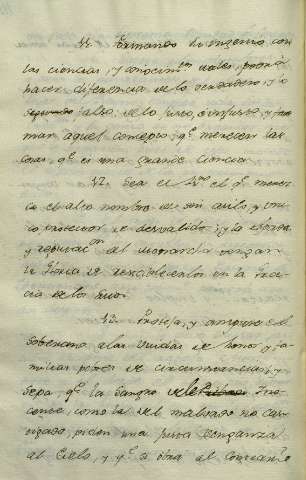 11. Formando su ingenio con
las ciencias, y conocim.tos utiles, podrá
hacer diferencia de lo verdadero, y lo
falso, de lo justo, é injusto, y for
mar aquel concepto, q.e merecen las
cosas, q.e es una grande ciencia.
12. Sea el q.e merez
ca el alto nombre de asilo, y
protector de desvalido, y la espada
y del Monarca vengan
en la
cia de los suios.
13. Proteja, y ampare el
Soberano alas viudas de honor, y fa
milias pobres de circunstancias, y
sepa q.e la sangre Ino
cente, como la del malvado no cas
tigado, piden una justa venganza
al Cielo, y q.e si obra al contrario